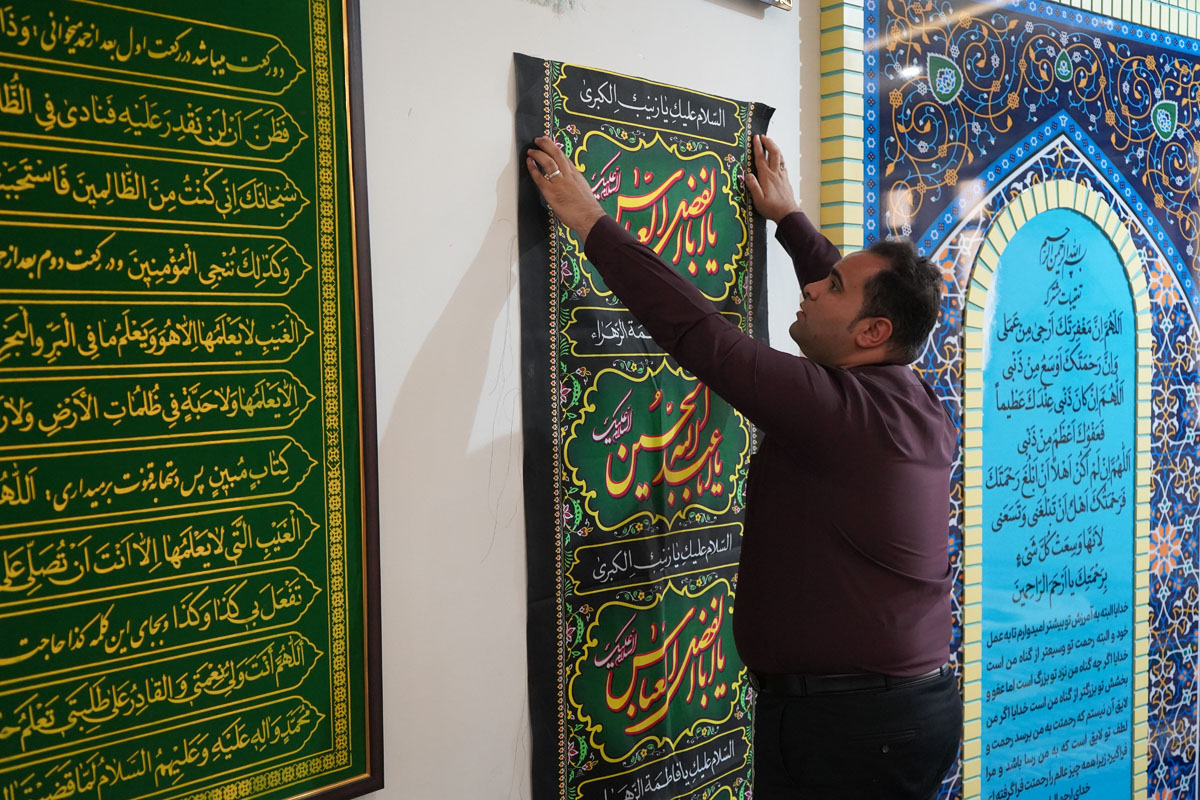 دو رکعت میباشد در رکعت اول بعد از حمد میخوانی: وَذَا
فَظَنَّ اَنْ لَنْ نَقْدِرَ عَلَیْهِ فَنَادیٰ فِی الظُّ
سُبْحَانَکَ اِنّی کُنْتُ مِنَ الظَّالِمینَ فَاسْتَجَبْ
وَکَذٰلِکَ نُنْجِی الْمُؤْمِنینَ و در رکعت دوم بعد از حم
الْغَیْبِ لایَعْلَمُها اِلّاهُوَ وَیَعْلَمُ ما فِی الْبَرِّ وَالْبَحْرِ
اِلّا یَعْلَمُهَا وَلاحَبَّةٍ فی ظُلُمَاتِ الْأَرْضِ وَلارَ
کِتَابٍ مُبینٍ پس دستها بقنوت برمیداری: اَللّٰهُمَّ
الْغَیْبِ الَّتی لایَعْلَمُها اِلّا اَنْتَ اَنْ تُصَلِّیَ عَلیٰ
تَفْعَلَ بی کَذٰا وَکَذٰا و بجای این کلمه کذا حاجت
اَللّٰهُمَّ اَنْتَ وَلِیُّ نِعْمَتی وَالقادِرُ عَلیٰ طَلِبَتی تَعْلَمُ حٰ
مُحَمَّدٍ وَالِهِ عَلَیْهِ وَعَلَیْهِمُ السَّلامُ لَمّا قَضَیْتَهٰا
السّلام علیکِ یا زینبَ الکبریٰ
یا اباالفضل العباس
علیک السلام
مة الزهراء
یا اباعبدالله الحسین
علیک السلام
السّلام علیکِ یا زینبَ الکبریٰ
یا اباالفضل العباس
علیک السلام
السّلام علیکِ یا فاطمة الزهراء
بسم الله الرحمن الرحیم
تعقیبات مشترکه
اَللّهُمَّ اِنَّ مَغْفِرَتَکَ اَرْجیٰ مِنْ عَمَلی
وَاِنَّ رَحْمَتَکَ اَوْسَعُ مِنْ ذَنْبی
اَللّهُمَّ اِنْ کانَ ذَنْبی عِنْدَکَ عَظیماً
فَعَفْوُکَ اَعْظَمُ مِنْ ذَنْبی
اَللّهُمَّ اِنْ لَمْ اَکُنْ اَهْلاً اَنْ اَبْلُغَ رَحْمَتَکَ
فَرَحْمَتُکَ اَهْلٌ اَنْ تَبْلُغَنی وَتَسَعَنی
لِاَنَّها وَسِعَتْ کُلَّ شَیْءٍ
بِرَحْمَتِکَ یا اَرْحَمَ الرّاحِمینَ
خدایا البته به آمرزش تو بیشتر امیدوارم تا به عمل
خود و البته رحمت تو وسیعتر از گناه من است
خدایا اگر چه گناه من نزد تو بزرگ است اما عفو و
بخشش تو بزرگتر از گناه من است خدایا اگر من
لایق آن نیستم که رحمتت به من برسد رحمت و
لطف تو لایق است که به من رسا باشد و مرا
فراگیرد زیرا همه چیز عالم را رحمتت فرا گرفته